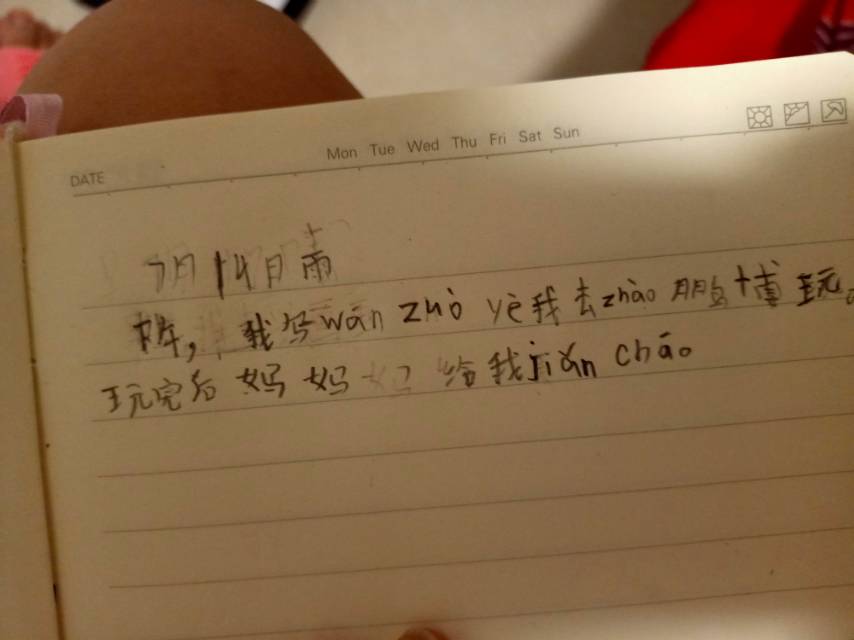 DATE Mon Tue Wed Thu Fri Sat Sun
7月14日 雨
我写wán zhò yè我去zhǎo 鹏博玩。
玩完后妈妈给我jiǎn chāo